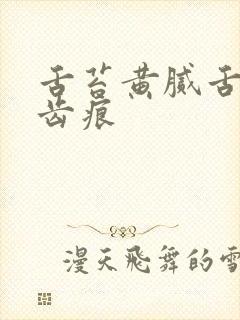 舌苔黄腻舌
齿痕
漫天飛舞的雪